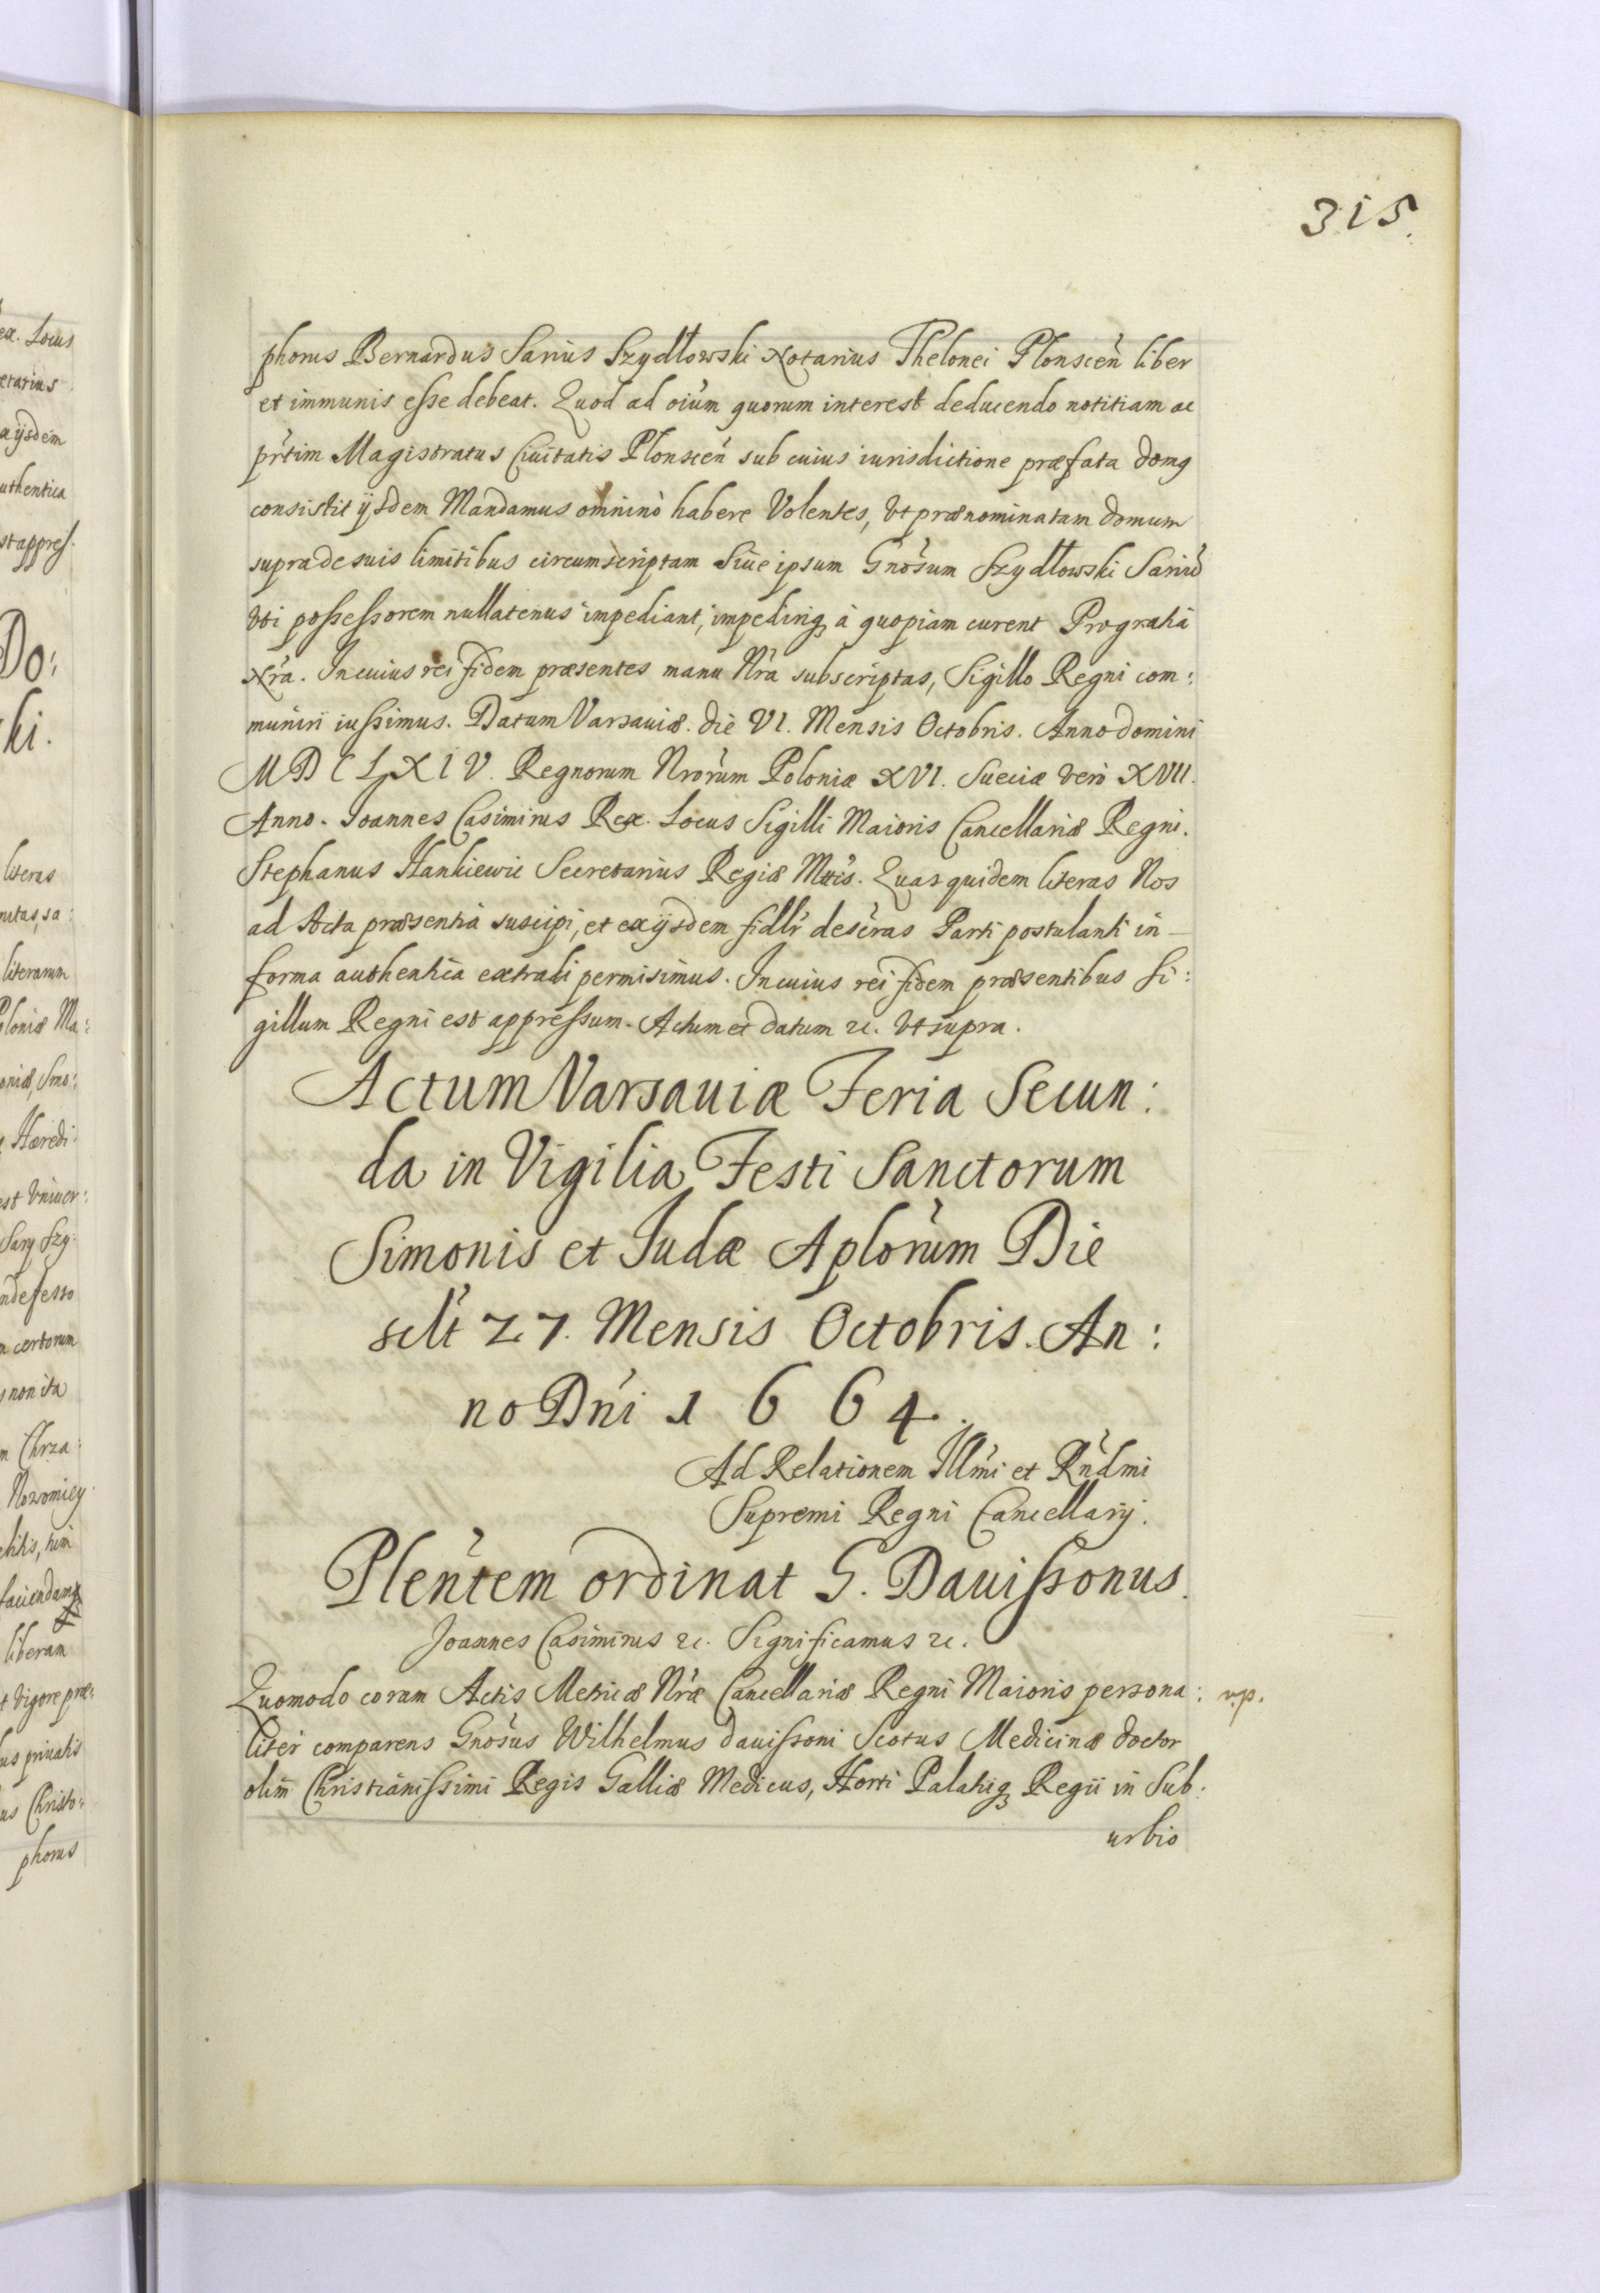 315.
phorus Bernardus Sarius Szydłowski Notarius Thelonei Plonscen̄ liber
et immunis esse debeat. Quod ad oiūm quorum interest deducendo notitiam ac
pr̄tim Magistratus Ciuitatis Plonscen̄ sub cuius iurisdictione præfata domꝯ
consistit ijsdem Mandamus omninò habere Volentes, Vt prænominatam domum
supra de suis limitibus circumscriptam Siue ipsum Gnōsum Szydłowski Sariū
Vti possessorem nullatenus impediant, impediriqꝫ à quopiam curent Pro gratia
Nrā. In cuius rei fidem præsentes manu Nrā subscriptas, Sigillo Regni com:
muniri iussimus. Datum Varsauiæ. die VI. Mensis Octobris. Anno domini
MDCLXIV. Regnorum Nrōrum Poloniæ XVI. Sueciæ verò XVII.
Anno. Joannes Casimirus Rex. Locus Sigilli Maioris Cancellariæ Regni.
Stephanus Hankiewic Secretarius Regiæ Mttis. Quas quidem literas Nos
ad Acta præsentia suscipi, et ex ijsdem fidlr̄ descr̄as Parti postulanti in
forma authentica extradi permisimus. In cuius rei fidem præsentibus Si:
gillum Regni est appressum. Actum et datum &c. Vt supra.
Actum Varsauiæ Feria Secun:
da in Vigilia Festi Sanctorum
Simonis et Judæ Aplōrum Die
sclt̄ 27. Mensis Octobris. An:
no Dn̄i 1664.
Ad Relationem Illm̄i et Rn̄dmi
Supremi Regni Cancellarij.
Plen̄tem ordinat G. Dauissonus.
Joannes Casimirus &c. Significamus &c.
Quomodo coram Actis Metricæ Nræ Cancellariæ Regni Maioris persona: v.p.
liter comparens Gnōsus Wilhelmus Dauissoni Scotus Medicinæ doctor
olim Christianissimi Regis Galliæ Medicus, Horti Palatiqꝫ Regii in Sub:
urbio